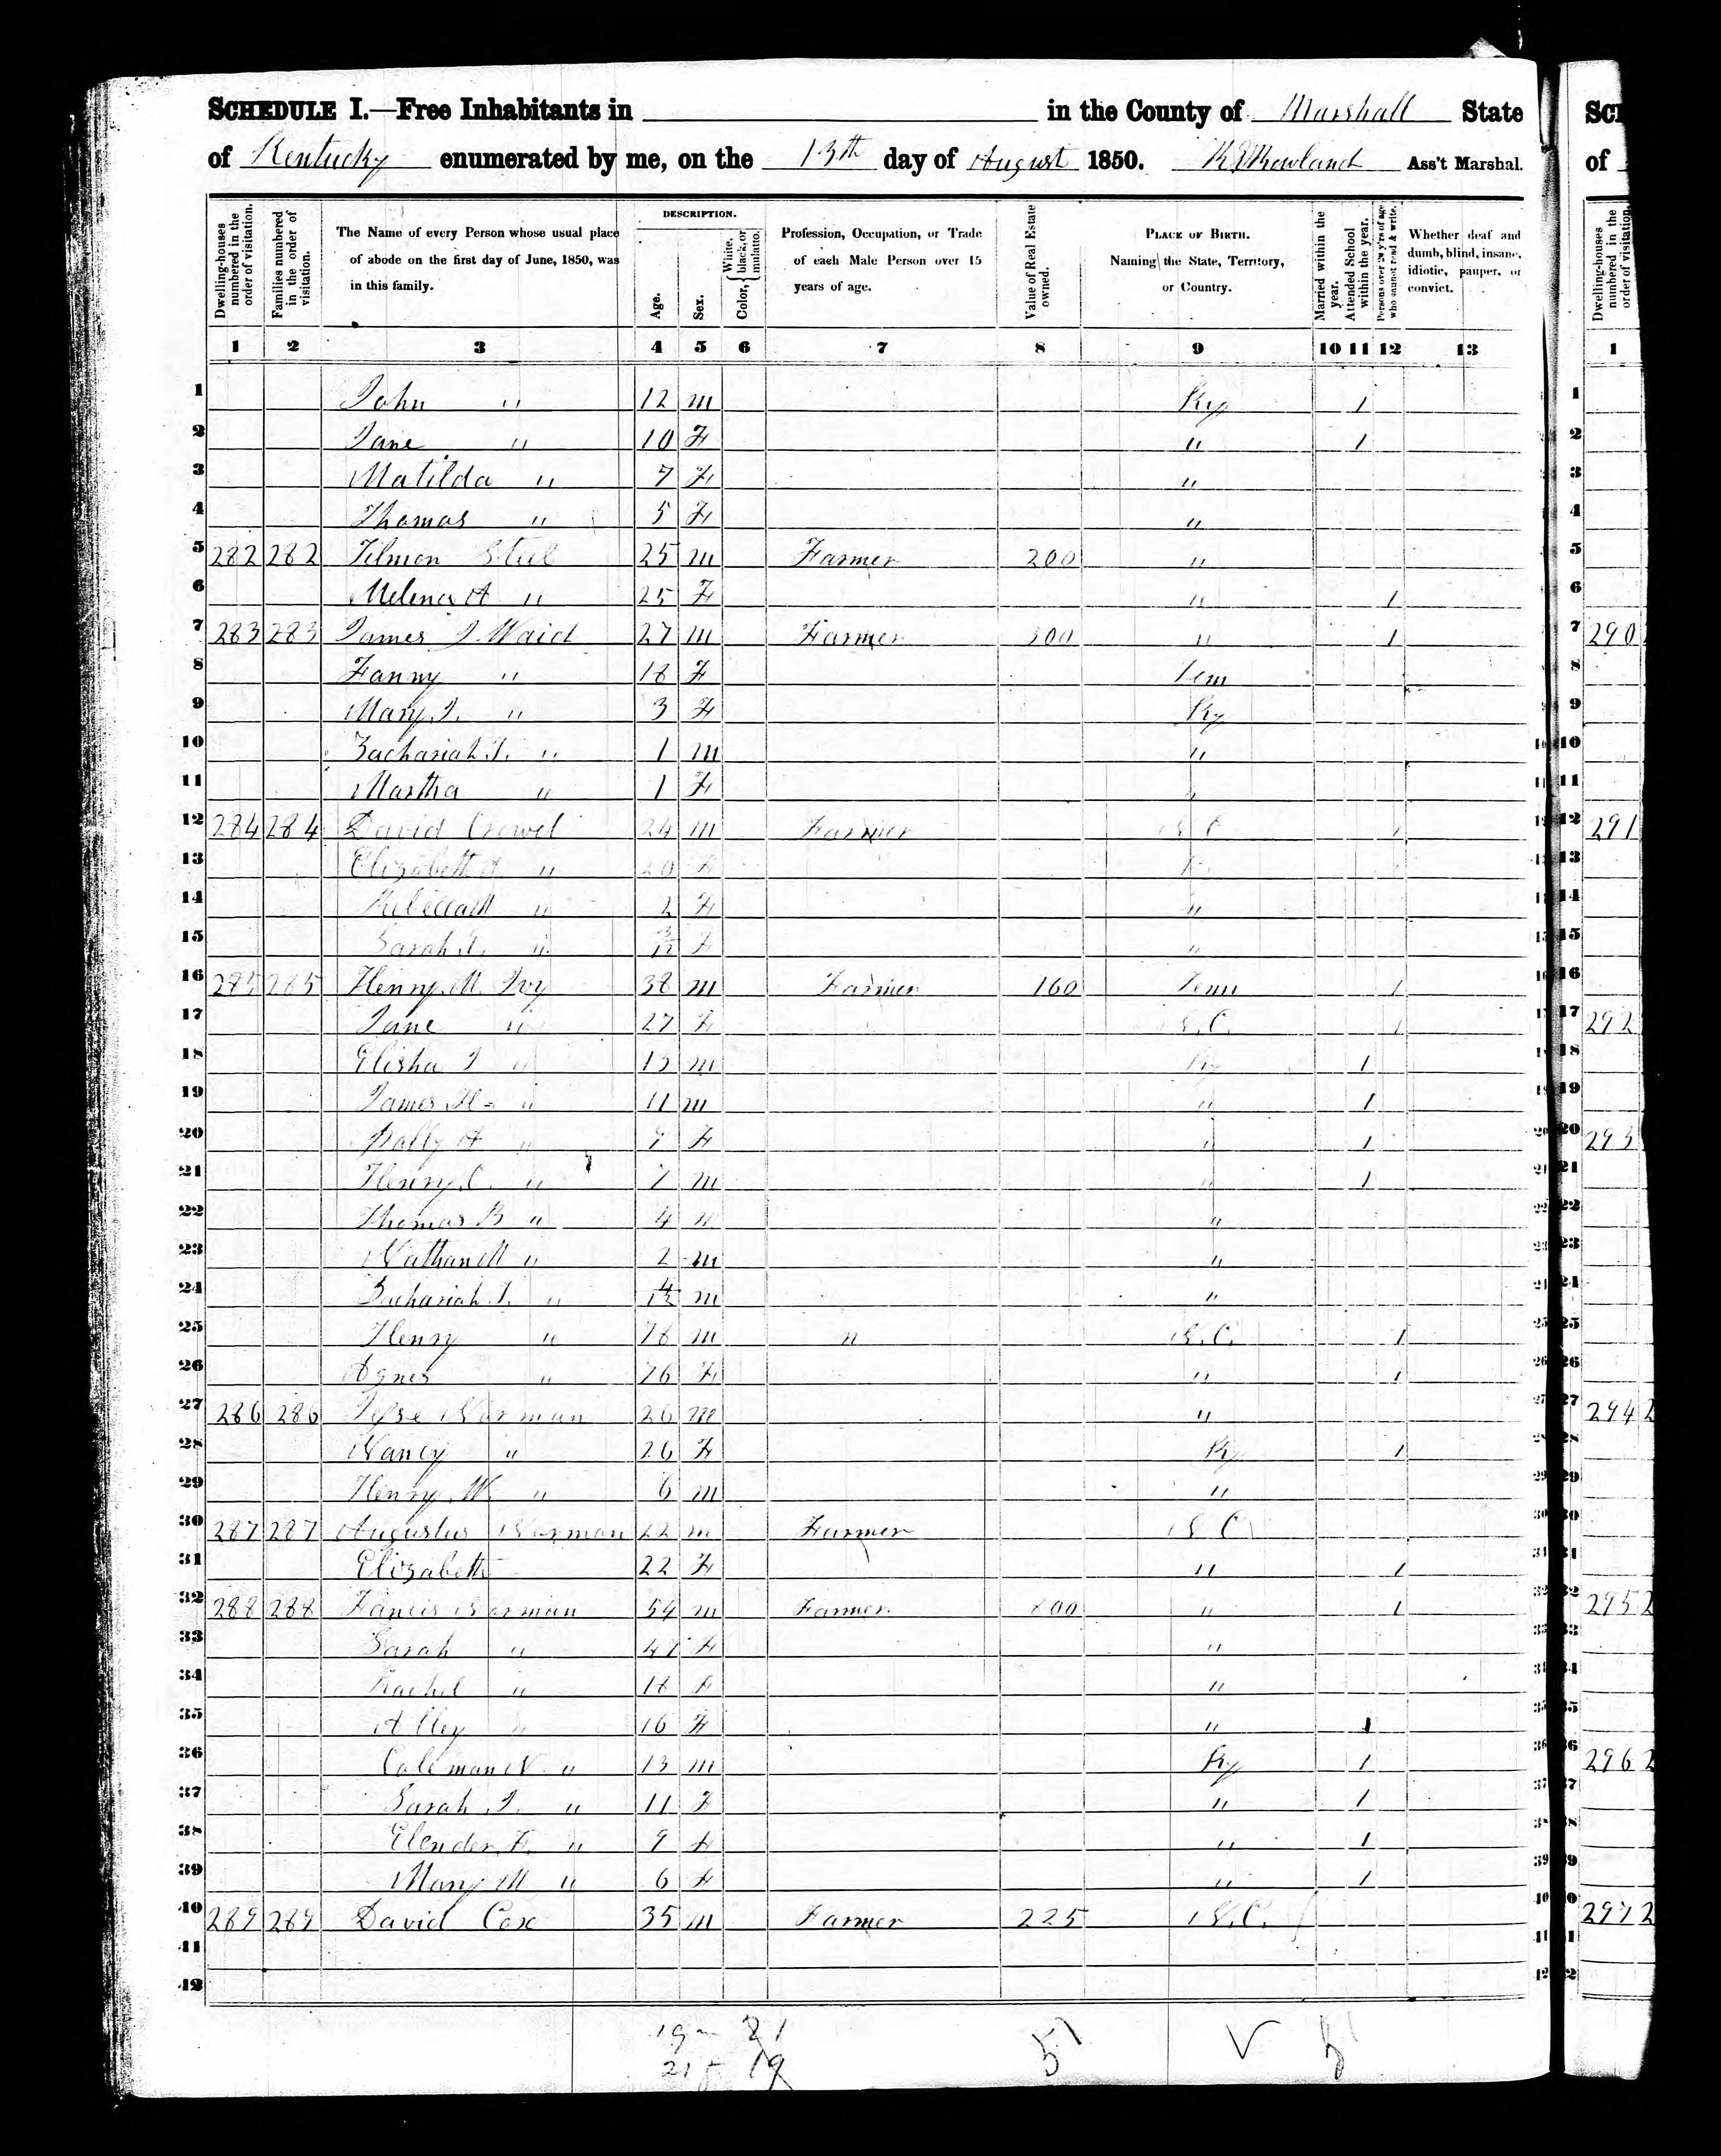 SCHEDULE I.—Free Inhabitants in in the County of Marshall State
of Kentucky enumerated by me, on the 13th day of August 1850. Rowland Ass't Marshal.
Dwelling-houses numbered in the order of visitation.
Families numbered in the order of visitation.
The Name of every Person whose usual place of abode on the first day of June, 1850, was in this family.
DESCRIPTION.
Age.
Sex.
Color, { White, black, or mulatto.
Profession, Occupation, or Trade of each Male Person over 15 years of age.
Value of Real Estate owned.
PLACE OF BIRTH. Naming the State, Territory, or Country.
Married within the year.
Attended School within the year.
Persons over 20 y'rs of age who cannot read & write.
Whether deaf and dumb, blind, insane, idiotic, pauper, or convict.
1 2 3 4 5 6 7 8 9 10 11 12 13
1 John " 12 m Ky 1
2 Jane " 10 F " 1
3 Matilda " 7 F "
4 Thomas " 5 F "
5 282 282 Tilmon Steel 25 m Farmer 200 "
6 Melena A " 25 F " 1
7 283 283 James J Waid 27 m Farmer 300 " 1
8 Fanny " 18 F Tenn
9 Mary J. " 3 F Ky
10 Zachariah T. " 1 m "
11 Martha " 1 F "
12 284 284 David Crowel 24 m Farmer N C 1
13 Elizabeth A " 20 F
14 Rebecca M " 2 F "
15 Sarah " F "
16 285 285 Henry M. Ivy 38 m Farmer 160 Tenn 1
17 Jane " 27 F N.C. 1
18 Elisha J " 13 m Ky 1
19 James H " 11 m " 1
20 Polly A " 9 F " 1
21 Henry C. " 7 m " 1
22 Thomas B " 4 m "
23 Nathan M " 2 m "
24 Zachariah T. " 4/12 m "
25 Henry " 78 m " N.C. 1
26 Agnes " 76 F " 1
27 286 286 Jesse Norman 26 m "
28 Nancy " 26 F Ky 1
29 Henry W. " 6 m "
30 287 287 Augustus Norman 22 m Farmer N C
31 Elizabeth 22 F " 1
32 288 288 Fancis Norman 54 m Farmer 800 " 1
33 Sarah " 47 F "
34 Rachel " 18 F "
35 Alley " 16 F " 1
36 Coleman N " 13 m Ky 1
37 Sarah J. " 11 F " 1
38 Elender F. " 9 F " 1
39 Mary M " 6 F " 1
40 289 289 David Cox 35 m Farmer 225 N.C.
41
42
19 m 21
21 f 19
SCH
of
Dwelling-houses numbered in the order of visitation.
1
1
2
3
4
5
6
7 290
8
9
10
11
12 291
13
14
15
16
17 292
18
19
20 293
21
22
23
24
25
26
27 294 2
28
29
30
31
32 295 2
33
34
35
36 296 2
37
38
39
40 297 2
41
42